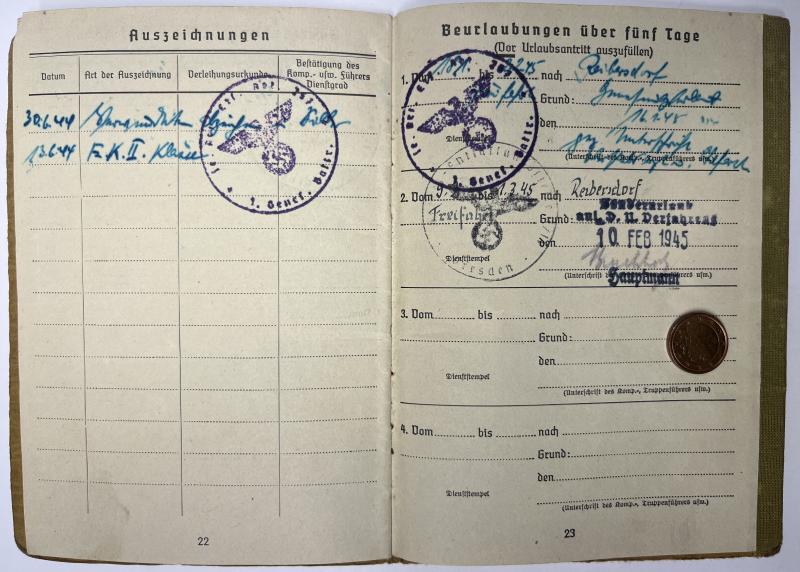 Auszeichnungen
Datum
Art der Auszeichnung
Verleihungsurkunde
Bestätigung des
Komp.- usw. Führers
Dienstgrad
30.6.44 Verwundeten in
13.6.44 E.K. II. Klasse
1. Genes. Battr.
22
Beurlaubungen über fünf Tage
(Vor Urlaubsantritt auszufüllen)
1. Vom bis 2.45 nach Reibersdorf
Grund: Genesungsurlaub
den 16.1.45
gez. Unterschrift
Dienststempel
(Unterschrift des Komp.-, Truppenführers usw.)
1. Genes. Battr.
2. Vom 9. 2.45 nach Reibersdorf
Freifahrt
Grund: Sonderurlaub
anl. D. U. Verfahrens
den 10 FEB 1945
Hauptmann
Dienststempel
Dresden
(Unterschrift des Komp.-, Truppenführers usw.)
3. Vom bis nach
Grund:
den
Dienststempel
(Unterschrift des Komp.-, Truppenführers usw.)
4. Vom bis nach
Grund:
den
Dienststempel
(Unterschrift des Komp.-, Truppenführers usw.)
23